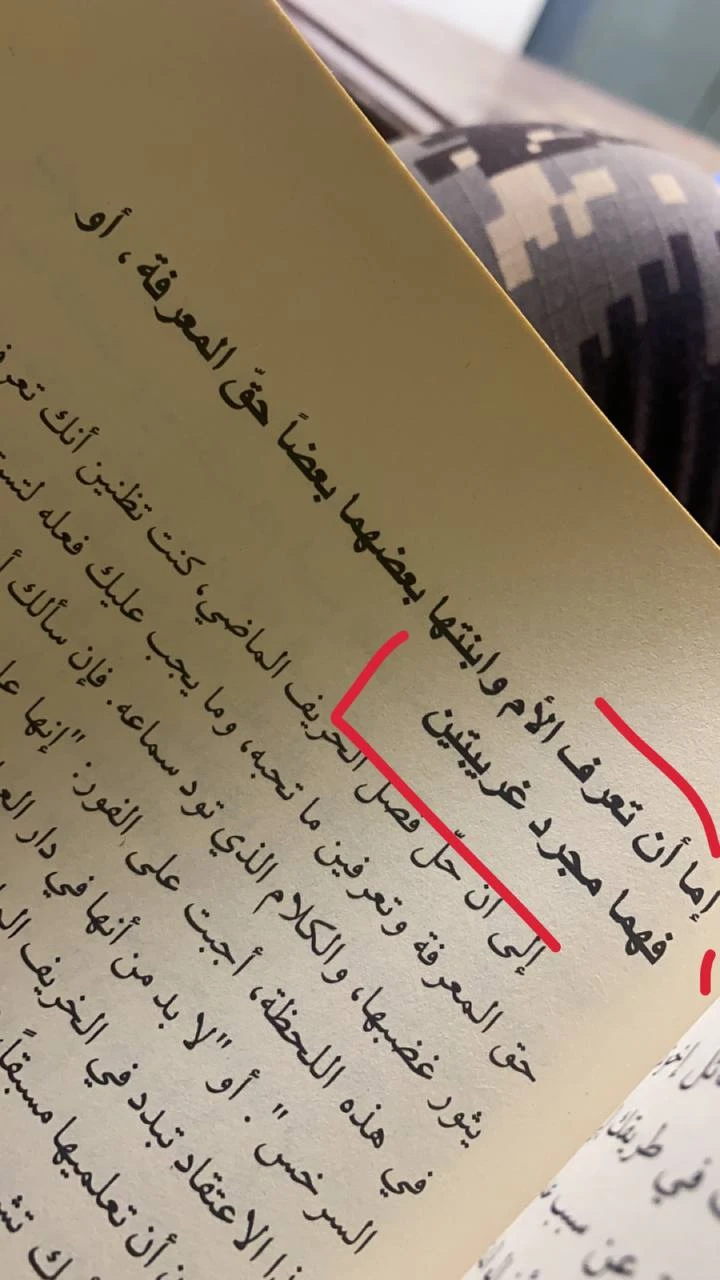 إما أن تعرف الأم وابنتها بعضهما بعضاً حقّ المعرفة، أو
فهما مجرد غريبتين
إلى أن حلّ فصل الخريف الماضي، كنت تظنين أنك
حق المعرفة وتعرفين ما تحبه، وما يجب عليك فعله
يثور غضبها، والكلام الذي تود سماعه. فإن سألك
في هذه اللحظة، أجبت على الفور: "إنها
السرخس". أو "لا بد من أنها في دار
الاعتقاد تبدد في الخريف
أن تعلميها مسبقاً
في طريقك
عن سبب